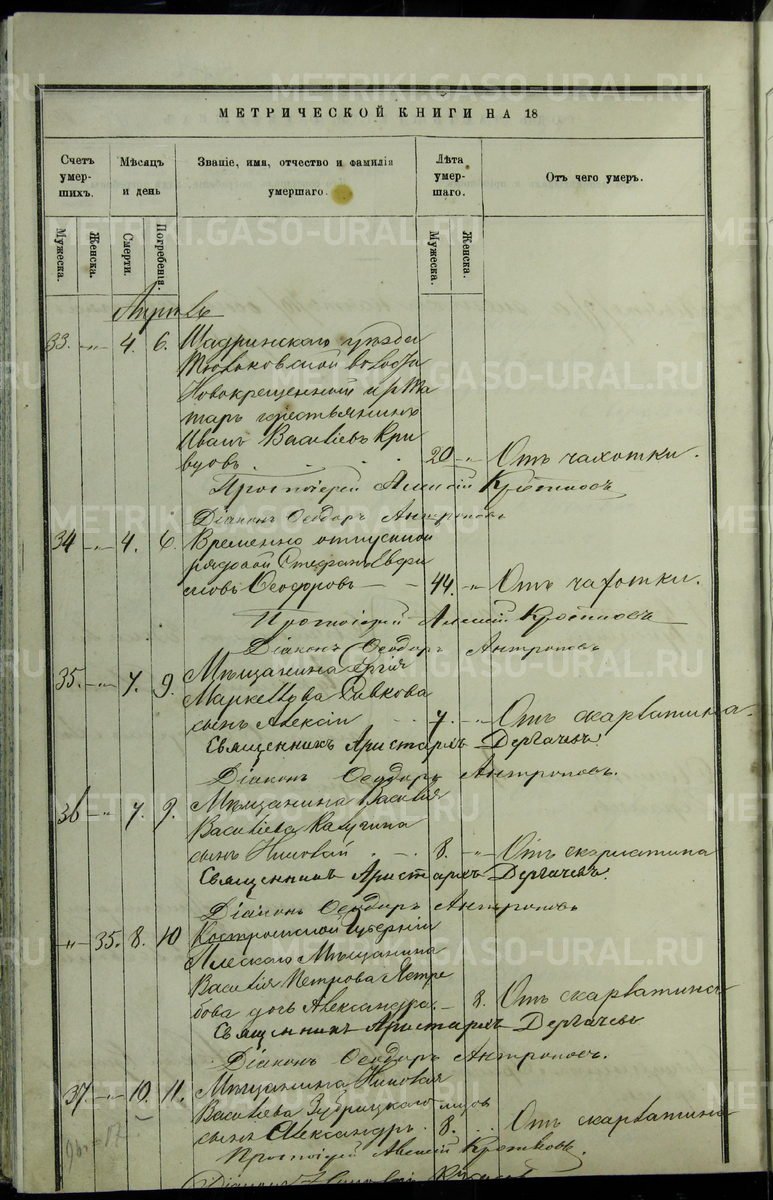 METRIKI.GASO-URAL.RU
МЕТРИЧЕСКОЙ КНИГИ НА 18
Счетъ умер-шихъ.
Мѣсяцъ и день
Званіе, имя, отчество и фамилія умершаго.
Лѣта умер-шаго.
Отъ чего умеръ.
Мужеска.
Женска.
Смерти.
Погребенія.
Мужеска.
Женска.
33. „ 4. 6. Шадринскаго уѣзда
волости
Новокрещенный изъ Та
таръ крестьянинъ
Иванъ Васильевъ Кри
вцовъ 20 „ Отъ чахотки.
Протоіерей Алексій
Діаконъ Ѳеодоръ Антроповъ
34 „ 4. 6. Временно отпускной
рядовой Стефанъ Евфи
мовъ Ѳеодоровъ 44. „ Отъ чахотки.
Протоіерей Алексій
Діаконъ Ѳеодоръ Антроповъ
35. „ 7. 9. Мѣщанина
сынъ Алексій 7. „ Отъ скарлатина
Священникъ Аристархъ Дергачевъ.
Діаконъ Ѳеодоръ Антроповъ.
36 „ 7. 9. Мѣщанина Василія
Васильева Калугина
сынъ Николай 8. „ Отъ скарлатина
Священникъ Аристархъ Дергачевъ.
Діаконъ Ѳеодоръ Антроповъ
„ 35. 8. 10 Костромской Губерніи
Плескаго Мѣщанина
Василія Петрова Ястре
бова дочь Александра. 8. Отъ скарлатина
Священникъ Аристархъ Дергачевъ
Діаконъ Ѳеодоръ Антроповъ.
37 „ 10. 11. Мѣщанина Николая
Васильева Зубрицкаго
сынъ Александръ. 8. Отъ скарлатина
Протоіерей Алексій
Діаконъ